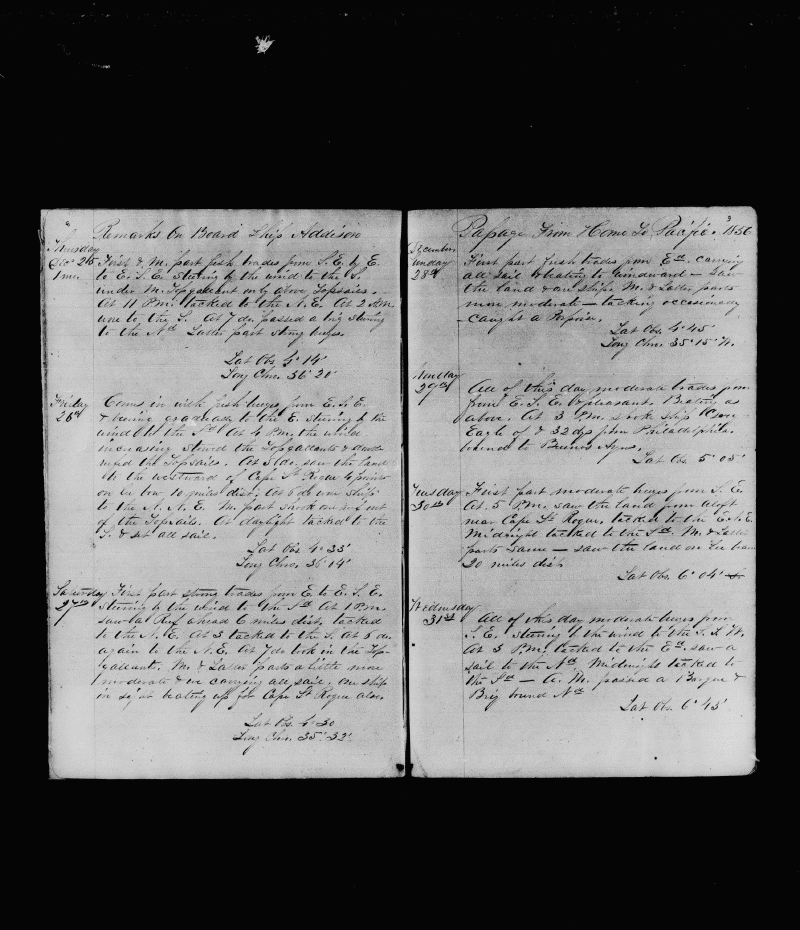 Remarks On Board Ship Addison
Thursday
Dec 25 First & M. part fresh trades from S. E. by E.
to E. S. E. Steering by the wind to the S.
under M. Topgallant only above Topsails.
At 11 P.M. tacked to the N. E. At 2 A.M.
wore to the S. At 7 do. passed a brig steering
to the Nd Latter part strong
Lat Obs. 4° 14'
Long Chro. 36° 20'
Friday
26th Comes in with fresh breezes from E. S. E.
& gradually to the E. Steering by the
wind to the Sd At 4 P.M. the wind
increasing stowed the Topgallants & double
reefed the Topsails. At 5 do. saw the land
to the westward of Cape St Roque 4 points
on lee bow 10 miles dist. At 6 do wore ship
to the N. N. E. M. part shook one reef out
of the Topsails. At daylight tacked to the
S. & set all sail.
Lat Obs. 4° 35'
Long Chro. 36° 14'
Saturday
27th First part strong trades from E. to E. S. E.
Steering by the wind to the Sd At 1 P.M.
saw a Reef ahead 6 miles dist. tacked
to the N. E. At 3 tacked to the S. At 6 do.
again to the N. E. At 7 do took in the Top-
gallant. M. & Latter parts a little more
moderate & we carrying all sail. One ship
in sight beating up for Cape St Roque also.
Lat Obs. 4° 30
Long Chro. 35° 32'
Passage From Home To Pacific. 3 1856
December
Sunday
28th First part fresh trades from Ed. carrying
all sail & beating to windward — Saw
the land & one ship. M. & Latter parts
more moderate — tacking occasionally
— caught a Porpoise.
Lat Obs. 4° 45'
Long Chro. 35° 15' W.
Monday
29th All of this day moderate trades from
from E. S. E. & pleasant. Beating as
above. At 3 P.M. spoke ship
Eagle of & 32 dys from Philadelphia
bound to Buenos Ayres.
Lat Obs. 5° 05'
Tuesday
30th First part moderate breezes from S. E.
At 5 P.M. saw the land from aloft
near Cape St Roque, tacked to the E. N. E.
Midnight tacked to the Sd. M. & Latter
parts same — saw the land on lee beam
20 miles dist
Lat Obs. 6° 04'
Wednesday
31st All of this day moderate breezes from
S. E. Steering by the wind to the S. S. W.
At 3 P.M. tacked to the Ed. saw a
sail to the Nd. Midnight tacked to
the Sd — A. M. passed a Barque &
Brig bound Nd
Lat Obs. 6° 43'